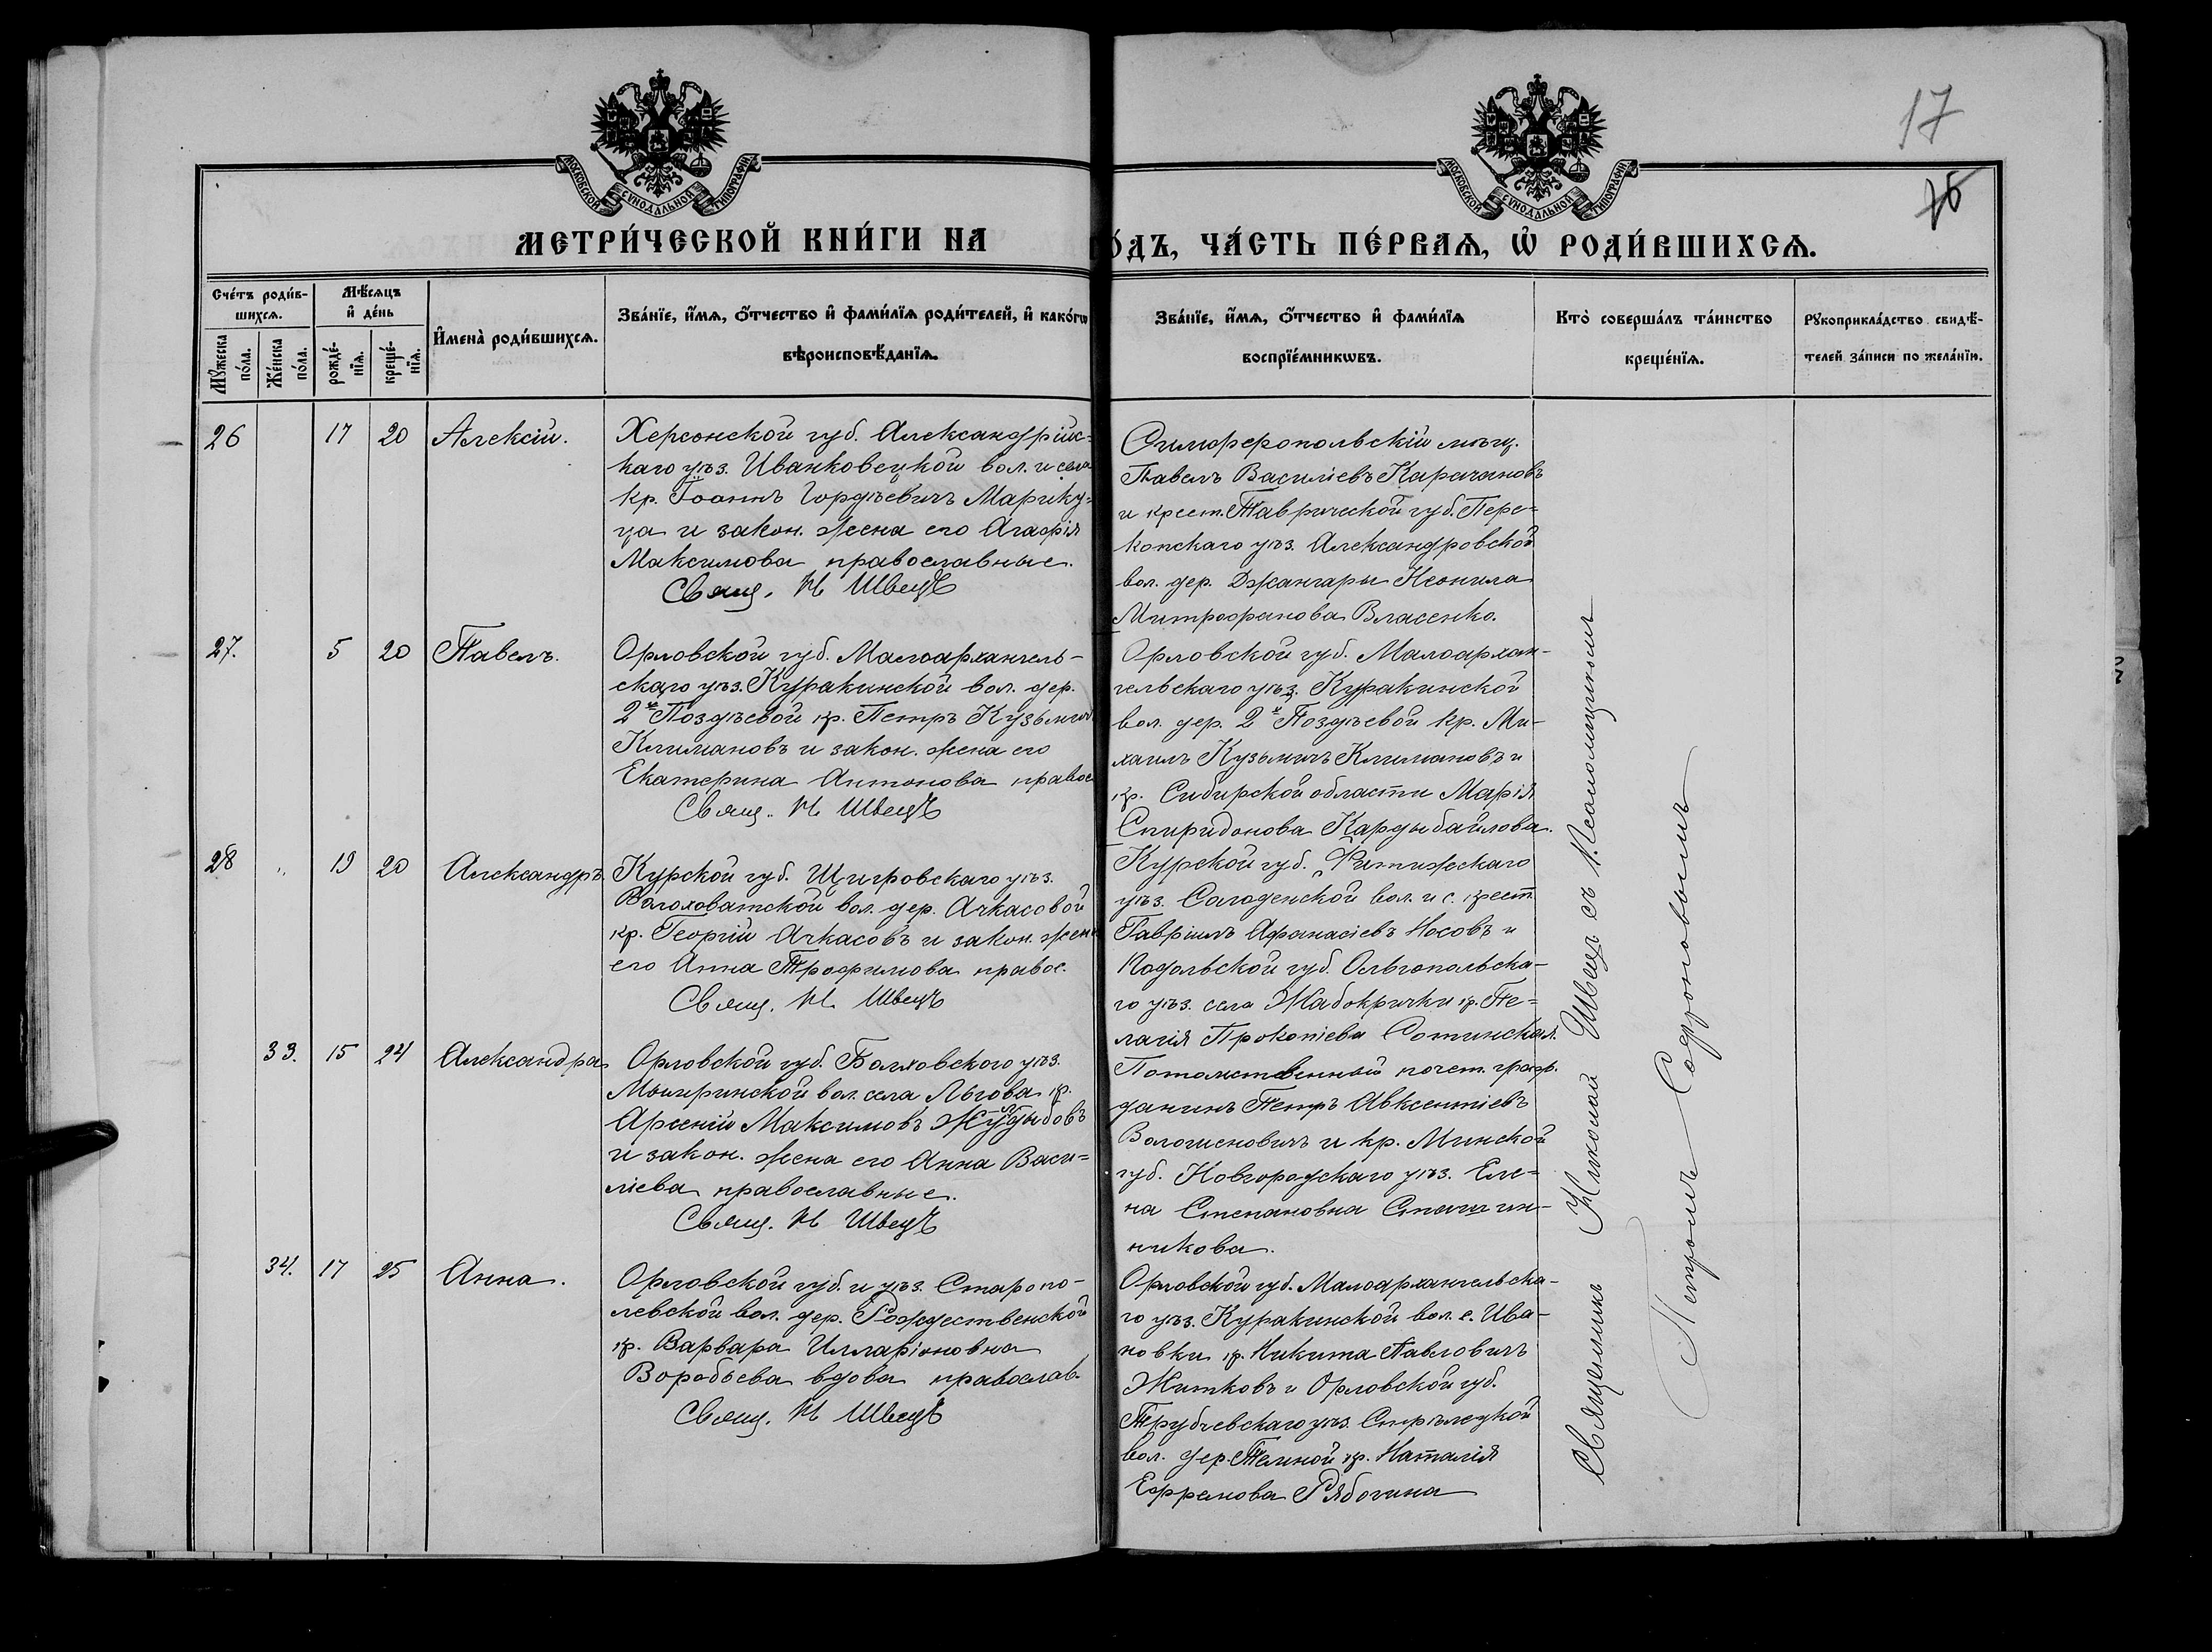 17
МОСКОВСКОЙ СѴНОДАЛЬНОЙ ТИПОГРАФІИ
МОСКОВСКОЙ СѴНОДАЛЬНОЙ ТИПОГРАФІИ
МЕТРИ́ЧЕСКОЙ КНИ́ГИ НА
О́ДЪ, ЧА́СТЬ ПЕ́РВАѦ, Ѡ҆ РОДИ́ВШИХСѦ.
Сче́тъ роди́в-
шихсѧ.
Мѣ́сѧцъ
и҆ де́нь
Мꙋ́жеска по́ла.
Же́нска по́ла.
рожде́-
нїѧ.
креще́-
нїѧ.
И҆мена̀ роди́вшихсѧ.
Зва́нїе, и҆́мѧ, ѻ҆́тчество и҆ фами́лїѧ роди́телей, и҆ како́гѡ
вѣроисповѣ́данїѧ.
Зва́нїе, и҆́мѧ, ѻ҆́тчество и҆ фами́лїѧ
воспрїе́мникѡвъ.
Кто̀ соверша́лъ та́инство
креще́нїѧ.
Рꙋкоприкла́дство свидѣ́-
телей за́писи по жела́нїю.
26 17 20 Алексій.
Херсонской губ. Александрійс-
каго уѣз. Иванковецкой вол. и села
кр. Іоаннъ Гордѣевичъ Марику-
ца и закон. жена его Агафія
Максимова православные.
Свящ. Н Швецъ
Симферопольскій мѣщ.
Павелъ Василіевъ Карачановъ
и крест. Таврической губ. Пере-
копскаго уѣз. Александровской
вол. дер. Джангары Неонила
Митрофанова Власенко.
27. 5 20 Павелъ.
Орловской губ. Малоархангель-
скаго уѣз. Куракинской вол. дер.
2й Поздѣевой кр. Петръ Кузьмичъ
Климановъ и закон. жена его
Екатерина Антонова правос
Свящ. Н Швецъ
Орловской губ. Малоархан-
гельскаго уѣз. Куракинской
вол. дер. 2й Поздѣевой кр. Ми-
хаилъ Кузьмичъ Климановъ и
кр. Сибирской области Марія
Спиридонова Кардыбайлова.
28 " 19 20 Александръ.
Курской губ. Щигровскаго уѣз.
вол. дер. Ачкасовой
кр. Георгій Ачкасовъ и закон. жена
его Анна Трофимова правос.
Свящ. Н. Швецъ
Курской губ.
уѣз. вол. и с. крест.
Гавріилъ Афанасіевъ Носовъ и
Подольской губ. Ольгопольска-
го уѣз. села Жабокрички кр. Пе-
лагія Прокопіева Сотинская.
33. 15 24 Александра
Орловской губ. Болховского уѣз.
вол. села Льгова кр.
Арсеній Максимовъ
и закон. жена его Анна Васи-
ліева православные.
Свящ. Н Швецъ
Потомственный почет. граж-
данинъ Петръ Авксентіевъ
и кр. Минской
губ. Новгородскаго уѣз. Еле-
на Степановна
никова.
34. 17 25 Анна.
Орловской губ. и уѣз. Старопо-
левской вол. дер. Рождественской
кр. Варвара Илларіоновна
Воробьева вдова православ.
Свящ. Н Швецъ
Орловской губ. Малоархангельска-
го уѣз. Куракинской вол. с. Ива-
новки кр. Никита Павловичъ
Житковъ и Орловской губ.
Трубчевскаго уѣз. Стрѣлецкой
вол. дер. Телиной кр. Наталія
Рябогина
Священникъ Николай Швецъ съ Псаломщикомъ
Петромъ Софроновымъ